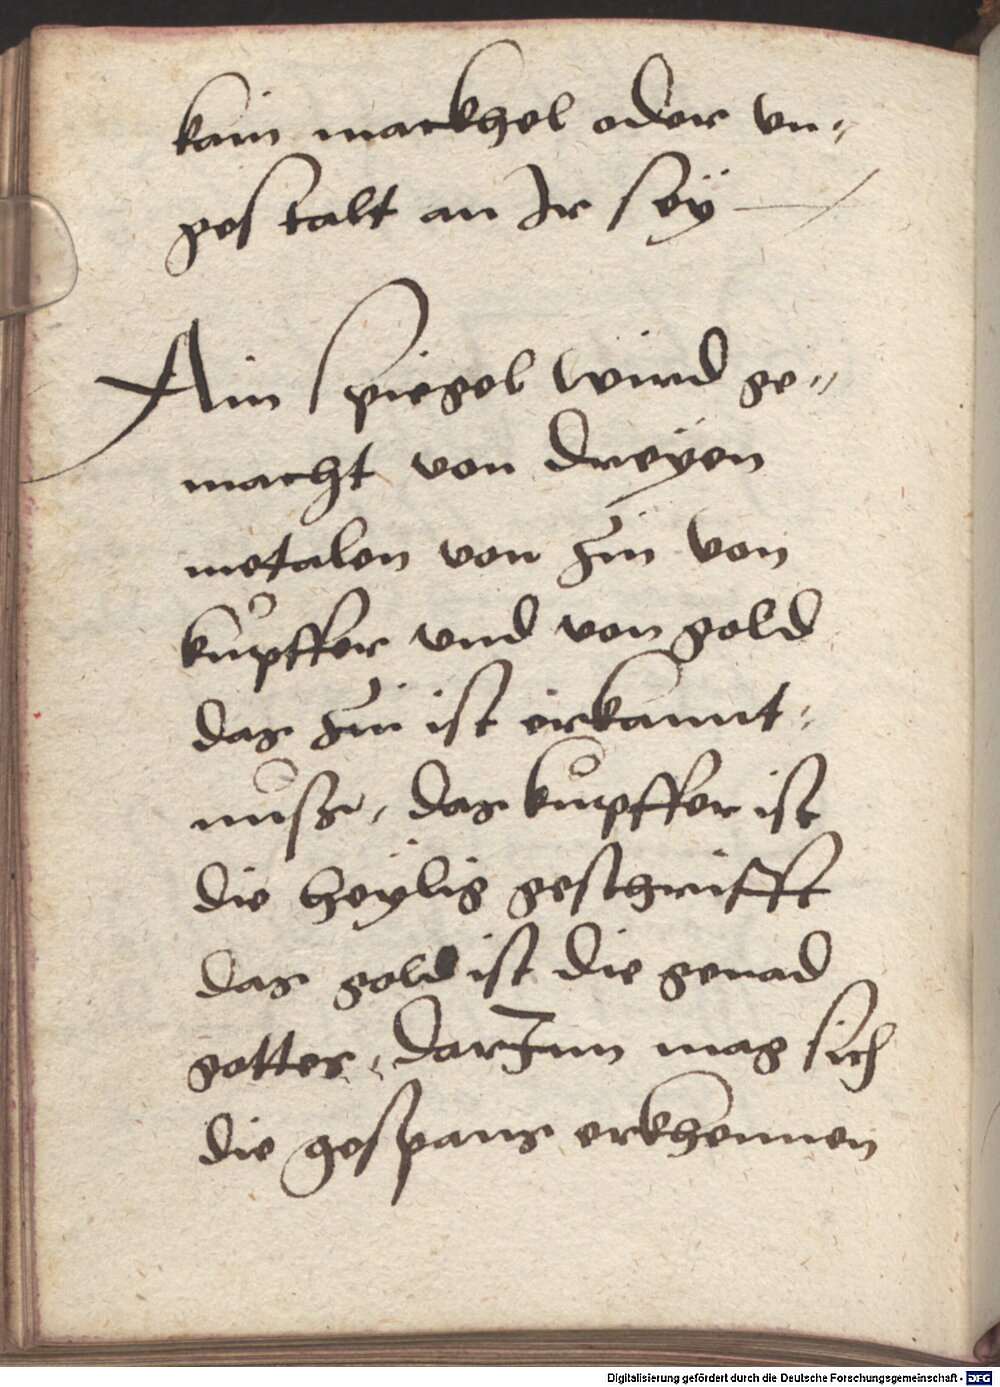 kain mackhel oder vn-
gestalt an Ir seÿ
Ain spiegel wird ge-
macht von dreÿen
metalen von zin von
kupffer vnd von gold
das zin ist erkannt-
nuss, das kupffer ist
die heÿlig geschrifft
das gold ist die genad
gottes, darInn mag sich
die gespans erkhennen
Digitalisierung gefördert durch die Deutsche Forschungsgemeinschaft - DFG